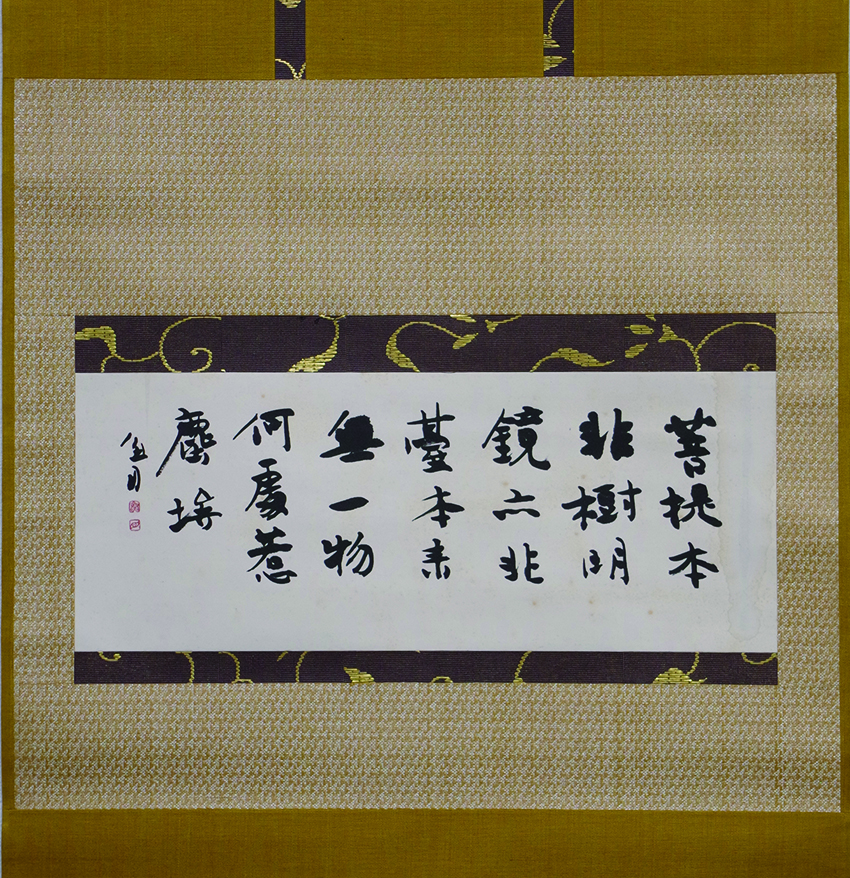 菩提本
非樹明
鏡亦非
臺本来
無一物
何處惹
塵埃